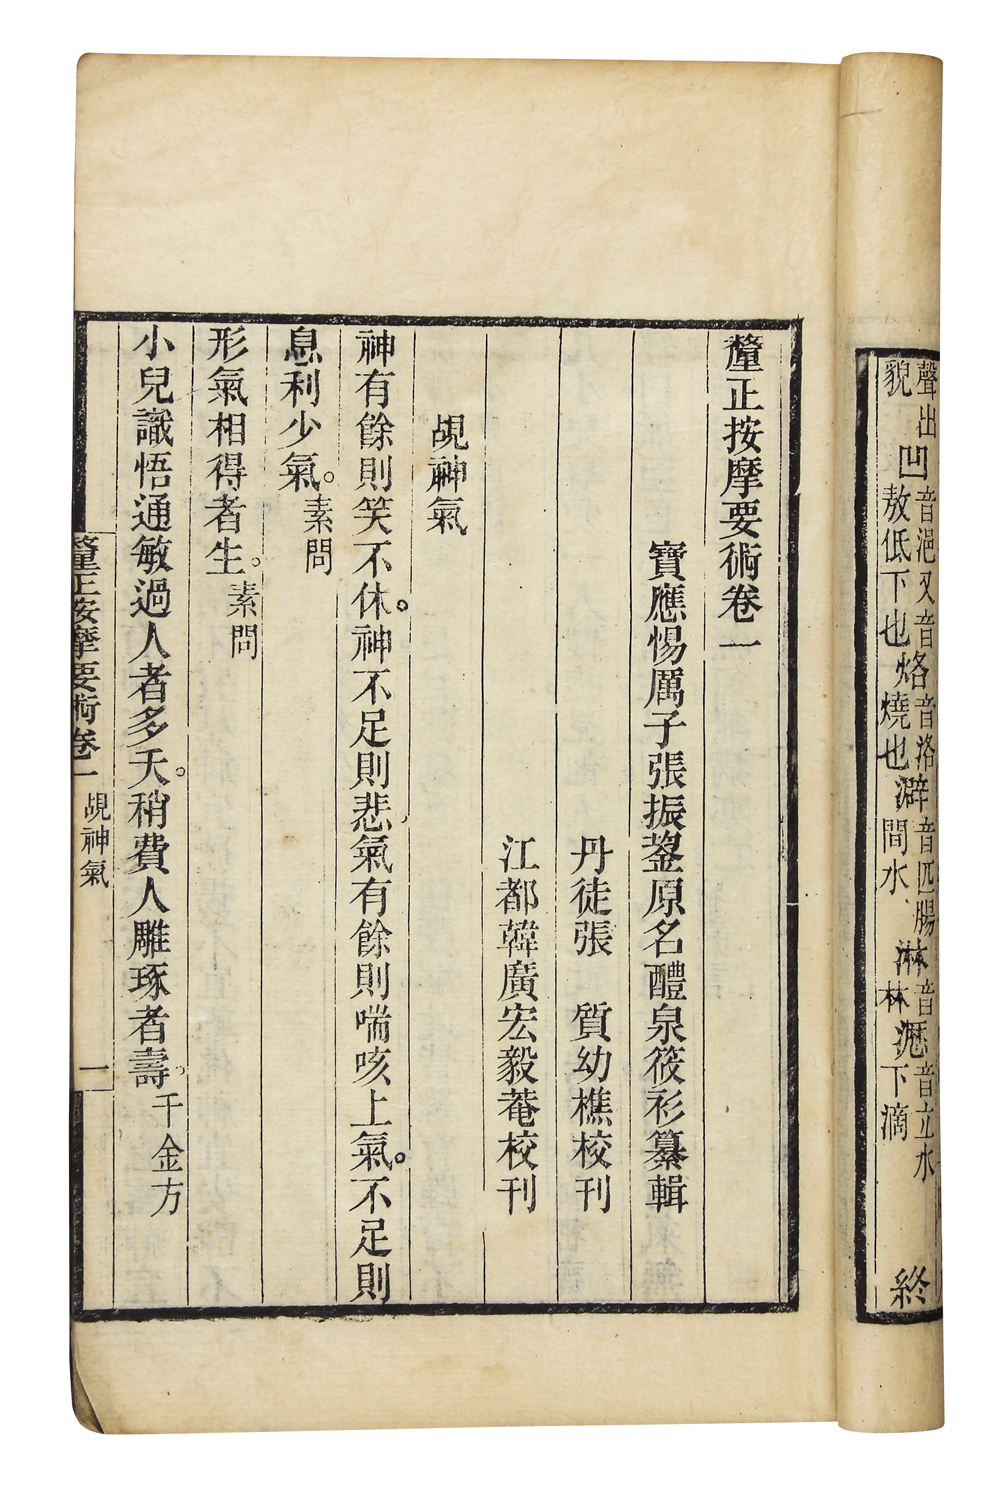 聲出
貌
凹
音浥又音
敖低下也
烙
音洛
燒也
澼
音匹腸
間水
淋
音
林
瀝
音立水
下滴
終
釐正按摩要術卷一
寶應惕厲子張振鋆原名醴泉筱衫纂輯
丹徒張　質幼樵校刊
江都韓廣宏毅菴校刊
覘神氣
神有餘則笑不休。神不足則悲。氣有餘則喘咳上氣。不足則
息利少氣。素問
形氣相得者生。素問
小兒識悟通敏過人者多夭。稍費人雕琢者壽。千金方
釐正按摩要術卷一　覘神氣　一